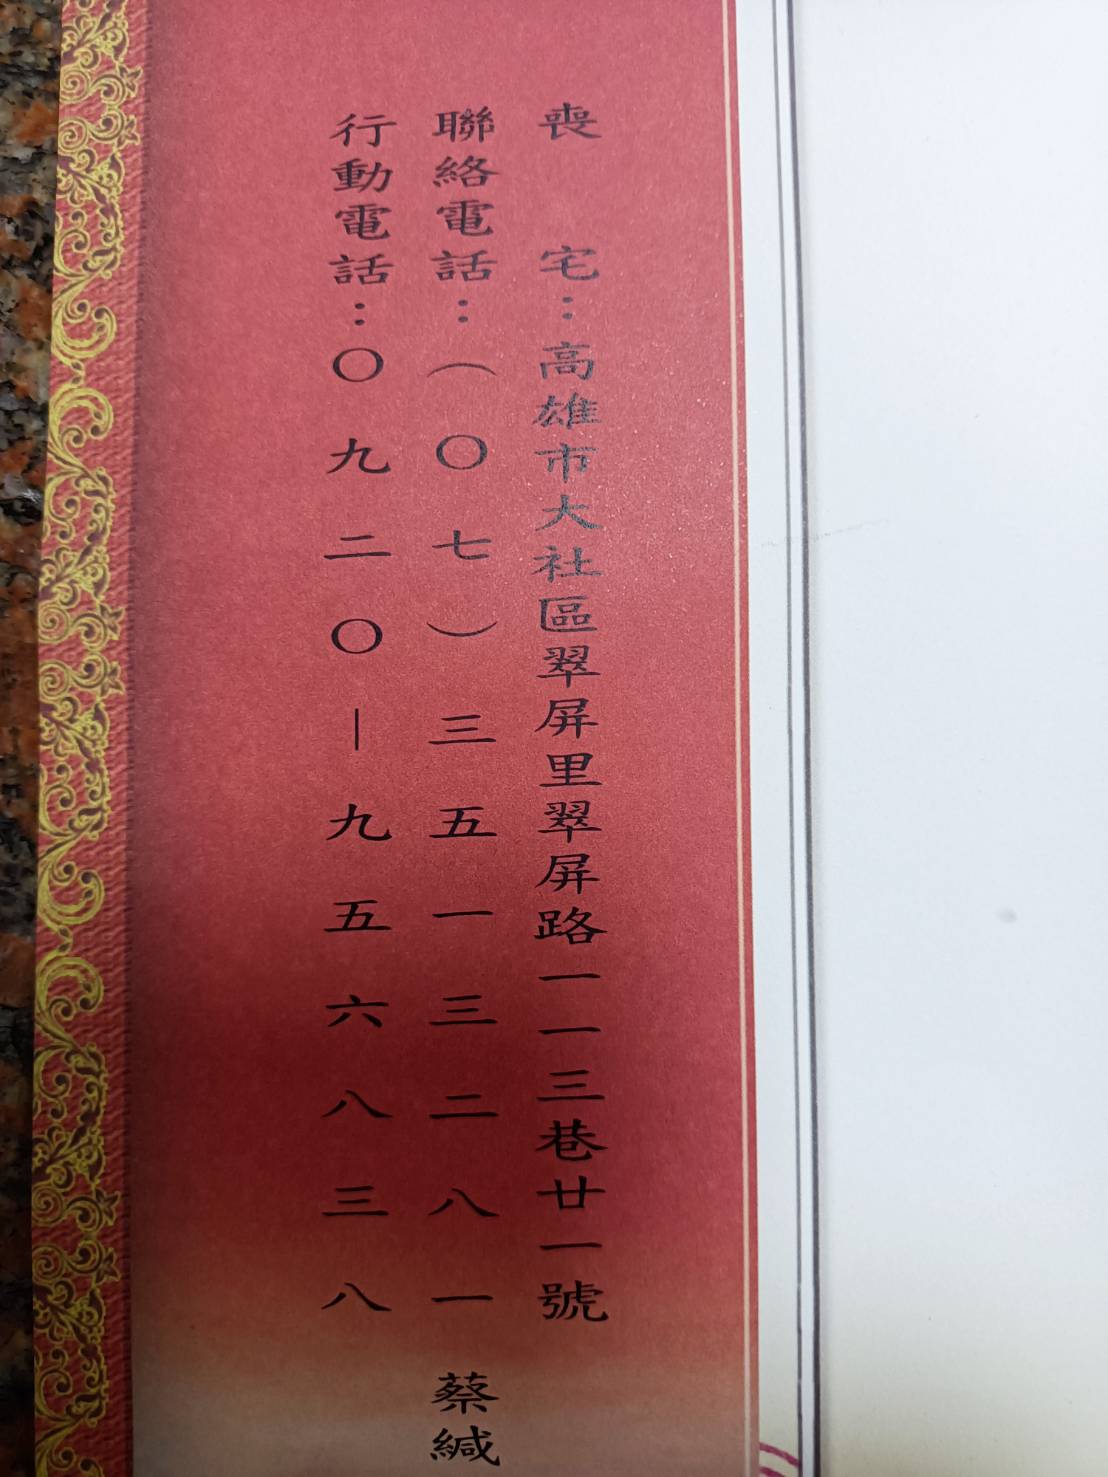 喪宅：高雄市大社區翠屏里翠屏路一一三巷廿一號
聯絡電話：（〇七）三五一三二八一 蔡緘
行動電話：〇九二〇－九五六八三八